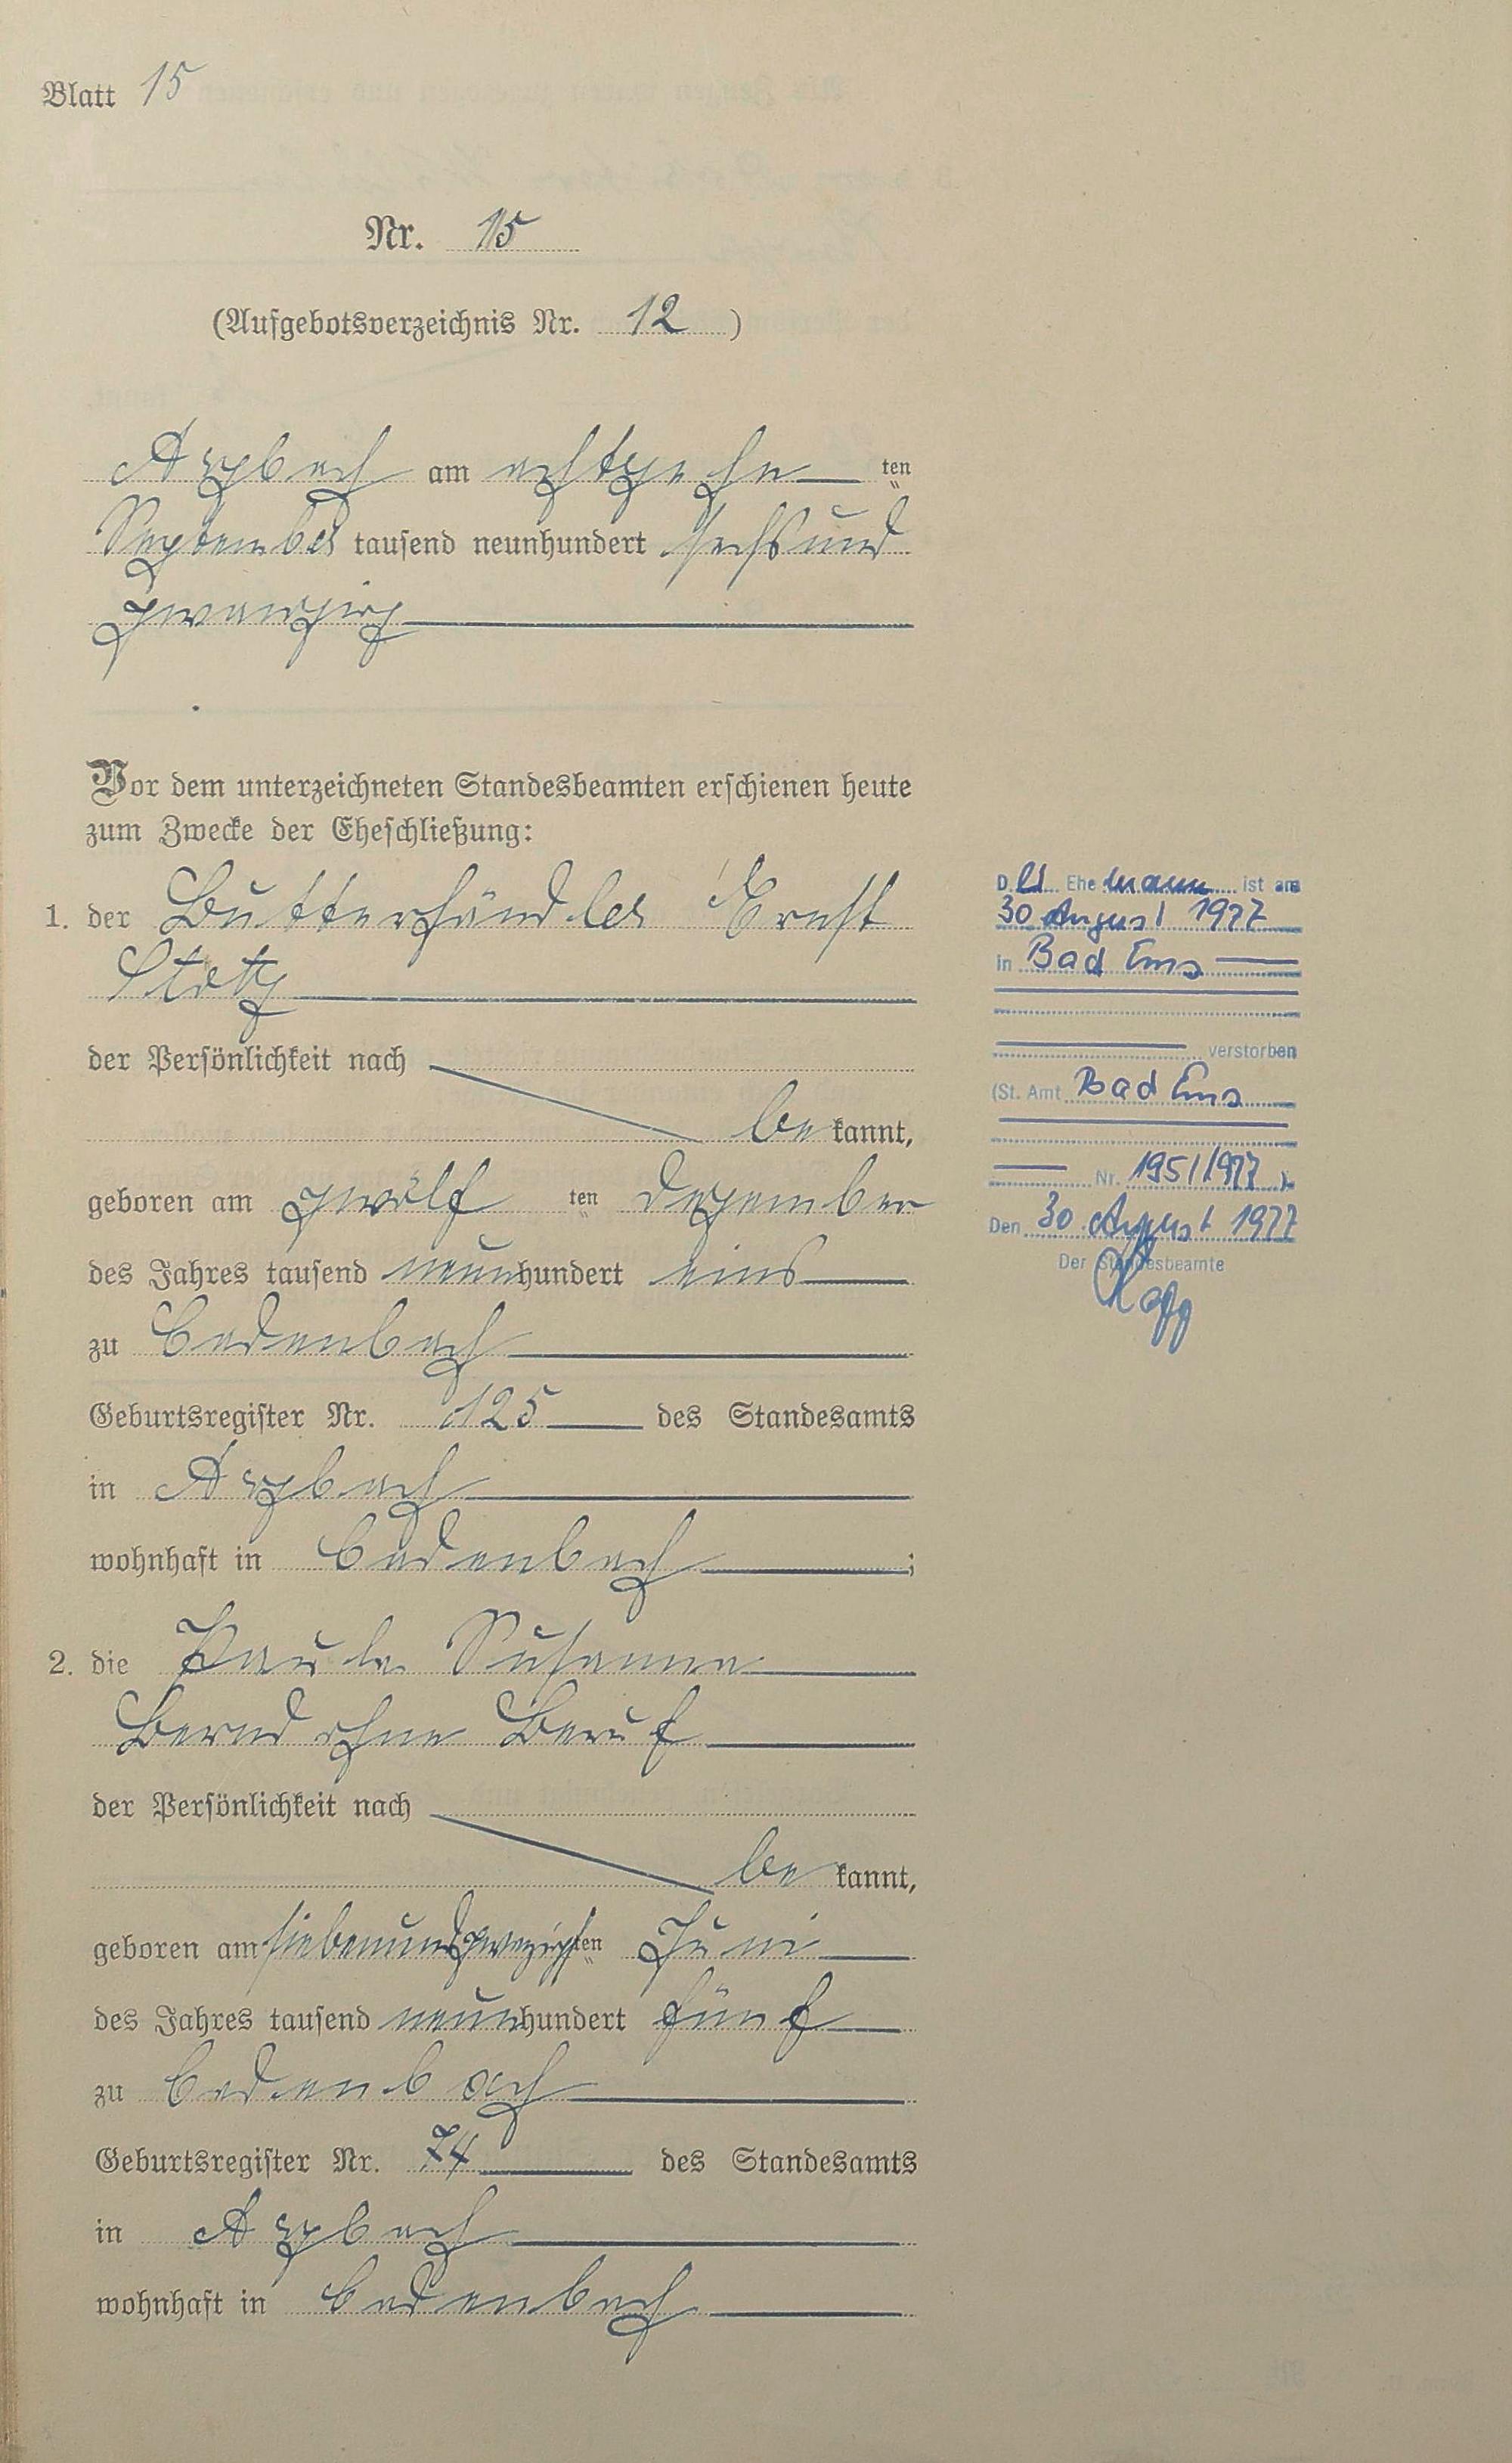 Blatt 15
Nr. 15
(Aufgebotsverzeichnis Nr. 12 )
Arzbach am achtzehn ten
September tausend neunhundert sechsund
zwanzig
Vor dem unterzeichneten Standesbeamten erschienen heute
zum Zwecke der Eheschließung:
1. der Butterhändler Ernst
der Persönlichkeit nach
be kannt,
geboren am zwölf ten Dezember
des Jahres tausend neun hundert eins
zu Cadenbach
Geburtsregister Nr. 125 des Standesamts
in Arzbach
wohnhaft in Cadenbach ;
2. die Paula Susanna
Bernd ohne Beruf
der Persönlichkeit nach
be kannt,
geboren am siebenundzwanzigsten Juni
des Jahres tausend neun hundert fünf
zu Cadenbach
Geburtsregister Nr. 74 des Standesamts
in Arzbach
wohnhaft in Cadenbach
D. er Ehe mann ist am
30 August 1977
in Bad Ems
verstorben
(St. Amt Bad Ems
Nr. 195/1977 ).
Den 30. August 1977
Der Standesbeamte